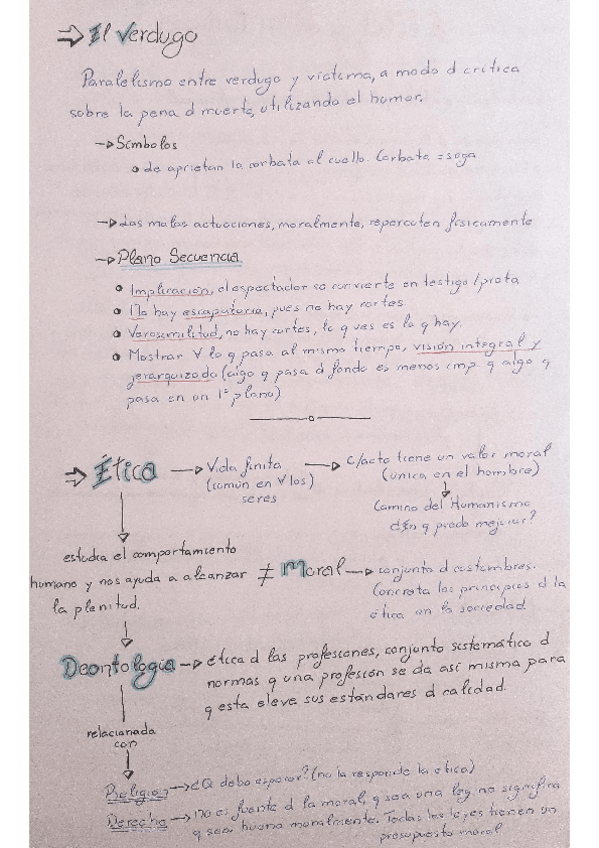 ⇒ El Verdugo
Paralelismo entre verdugo y víctima, a modo d crítica
sobre la pena d muerte, utilizando el humor.
→ Símbolos
• de aprietan la corbata al cuello. Corbata = soga
→ Las malas actuaciones, moralmente, repercuten físicamente
→ Plano Secuencia
• Implicación, el espectador se convierte en testigo/prota
• No hay escapatoria, pues no hay cortes
• Verosimilitud, no hay cortes, lo q ves es lo q hay.
• Mostrar ∀ lo q pasa al mismo tiempo, visión integral y
jerarquizada (algo q pasa d fondo es menos imp. q algo q
pasa en un 1º plano)
⇒ Ética → Vida finita → C/acto tiene un valor moral
(común en ∀ los) (única en el hombre)
seres
Camino del Humanismo
¿En q puedo mejorar?
estudia el comportamiento
humano y nos ayuda a alcanzar ≠ Moral → conjunto d costumbres.
la plenitud. Concreta los principios d la
ética en la sociedad
Deontología → ética d las profesiones, conjunto sistemático d
normas q una profesión se da así misma para
q esta eleve sus estándares d calidad.
relacionada
con
Religión → ¿Q debo esperar? (no la responde la ética)
Derecho → no es fuente d la moral, q sea una ley no significa
q sea buena moralmente. Todas las leyes tienen un
presupuesto moral